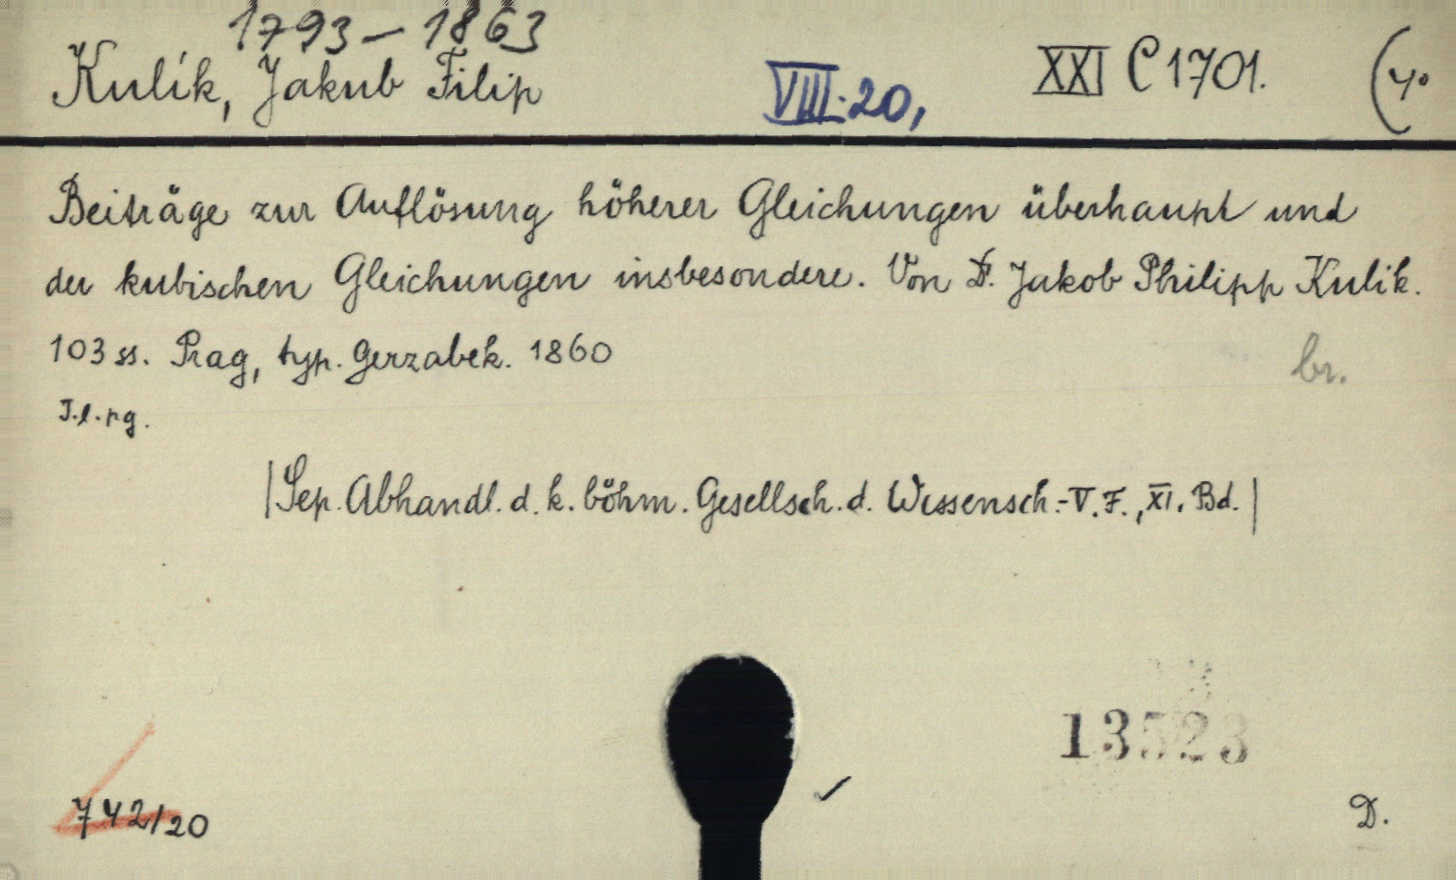 1793 – 1863
Kulík, Jakub Filip VIII. 20, XXI C 1701. (4°
Beiträge zur Auflösung höherer Gleichungen überhaupt und
der kubischen Gleichungen insbesondere. Von Dr. Jakob Philipp Kulik.
103 ss. Prag, typ. Gerzabek. 1860 br.
T.l.pg.
|Sep. Abhandl. d. k. böhm. Gesellsch. d. Wissensch.-V. F., XI. Bd.|
13523
742/20 D.